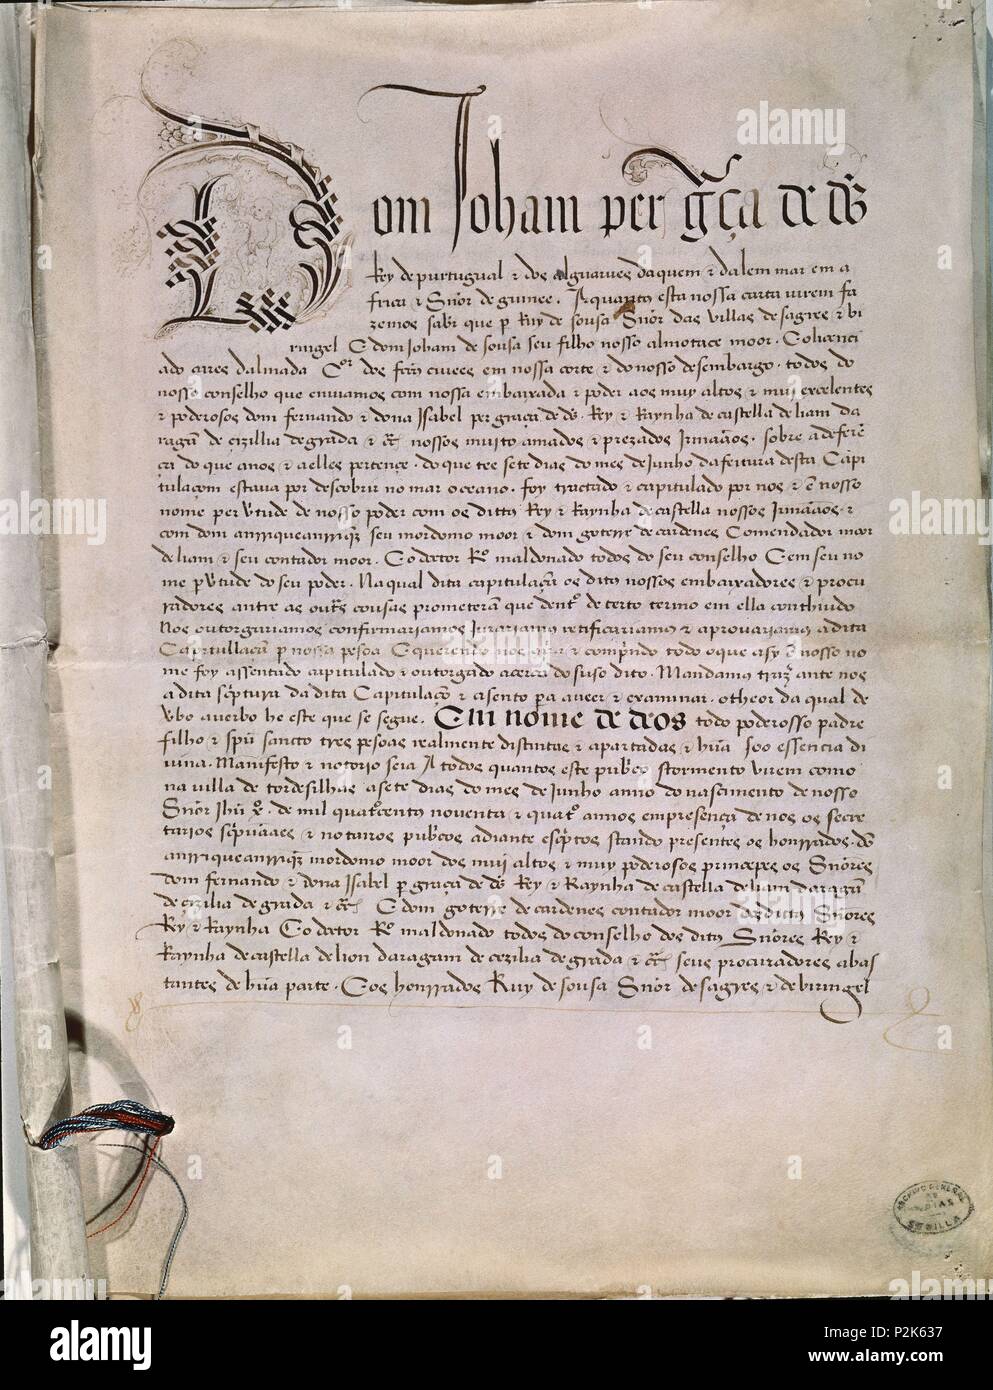 Dom Joham per gça de ds
Rey de purtugual & dos alguarues daquem & dalem mar em a
frica & Snõr de guinee. A quantos esta nossa carta virem fa
zemos saber que p Ruy de sousa Snõr das villas de sagres & bi
ringel E dom Joham de sousa seu filho nosso almotace moor. Eo licenci
ado aires dalmada Cor dos em nossa corte & do nosso desembargo. todos do
nosso conselho que enviamos com nossa embaixada & poder aos muy altos & muj excelentes
& poderosos dom fernando & dona Isabel per graça de ds. Rey & Raynha de castella de liam da
ragam de cizillia de grada & cet nossos muito amados & prezados Irmaãos. sobre a deferẽ
ça do que a nos & a elles pertençe. do que tee sete dias do mes de Junho da feitura desta Capi
tulaçom estava por descobrir no mar oceano. foy tractado & capitulado por nos & ẽ nosso
nome per vertude de nosso poder com os dittos Rey & Raynha de castella nossos Irmãaos. &
com dom anrrique anrriquez seu mordomo moor & dom goterre de cardenes Comendador moor
de liam & seu contador moor. Eo doctor Ro maldonado todos do seu conselho E em seu no
me p vertude do seu poder. Na qual dita capitulaçam os ditos nossos embaixadores & procu
radores antre as outras cousas prometeram que dentro de certo termo em ella conthiudo
Nos outorguariamos confirmariamos Jurariamos retificariamos & aprovariamos a dita
Capitullaçam p nossa pesoa E querendo nos & comprindo todo o que asy ẽ nosso no
me foy assentado capitulado & outorgado acerca do suso dito. Mandamos trazer ante nos
a dita scriptura da dita Capitulaçam & asento pera a veer & examinar. o theor da qual de
verbo a verbo he este que se segue. Em nome de deos todo poderosso padre
filho & spũ sancto tres pesoas realmente distintas & apartadas & hũa soo essencia di
vina. Manifesto & notorio seia A todos quantos este pubrico stormento virem como
na villa de tordesilhas a sete dias do mes de Junho anno do nascimento de nosso
Snõr Jhũ xo. de mil quatrocentos noventa & quatro annos em presença de nos os secre
tarios & notairos pubricos adiante escriptos stando presentes os honrrados. dõ
anrrique anrriquez mordomo moor dos muj altos & muy poderosos princepes os Snõres
dom fernando & dona Isabel p graça de ds Rey & Raynha de castella de liam daragam
de cizilia de grada & cet E dom goterre de cardenes contador moor dos dittos Snõres
Rey & Raynha Eo doctor Ro maldonado todos do conselho dos dittos Snõres Rey &
Raynha de castella de lion daragam de cezilia de grada & cet seus procuradores abas
tantes de hũa parte. E os honrrados Ruy de sousa Snõr de sagres & de biringel
ARCHIVO GENERAL
DE
INDIAS
SEVILLA
alamy
a
alamy
www.alamy.com
P2K637